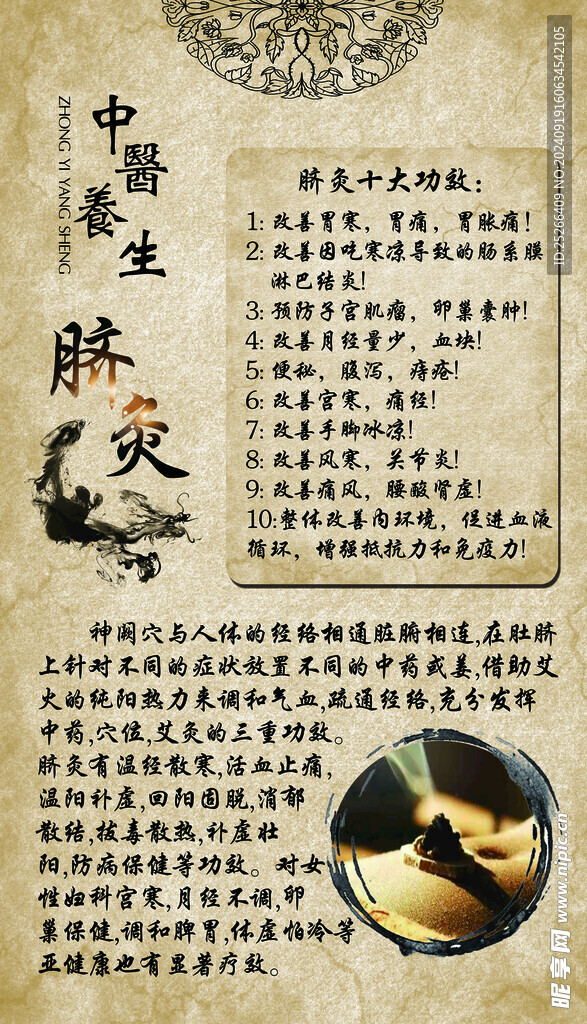 中醫養生
ZHONG YI YANG SHENG
脐灸
脐灸十大功效：
1: 改善胃寒，胃痛，胃胀痛！
2: 改善因吃寒凉导致的肠系膜
淋巴结炎！
3: 预防子宫肌瘤，卵巢囊肿！
4: 改善月经量少，血块！
5: 便秘，腹泻，痔疮！
6: 改善宫寒，痛经！
7: 改善手脚冰凉！
8: 改善风寒，关节炎！
9: 改善痛风，腰酸肾虚！
10:整体改善内环境，促进血液
循环，增强抵抗力和免疫力！
神阙穴与人体的经络相通脏腑相连,在肚脐
上针对不同的症状放置不同的中药或姜,借助艾
火的纯阳热力来调和气血,疏通经络,充分发挥
中药,穴位,艾灸的三重功效。
脐灸有温经散寒,活血止痛,
温阳补虚,回阳固脱,消郁
散结,拔毒散热,补虚壮
阳,防病保健等功效。对女
性妇科宫寒,月经不调,卵
巢保健,调和脾胃,体虚怕冷等
亚健康也有显著疗效。
ID:25266409 NO:20240919160634542105
昵享网 www.nipic.cn